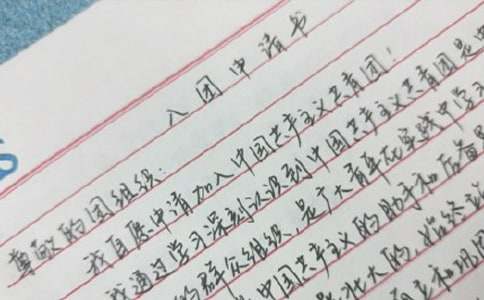 入团申请书
尊敬的团组织：
我自愿申请加入中国共产主义共青团！
我通过学习深刻认识到中国共产主义共青团是中
的群众组织，是广大青年在实践中学习
中国共产主义的助手和后备
大的，始终站